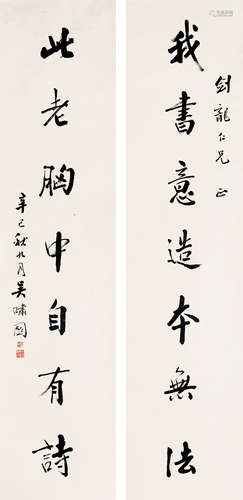 我書意造本無法
劍龍仁兄 正
此老胸中自有詩
辛已秋九月吳嘯園